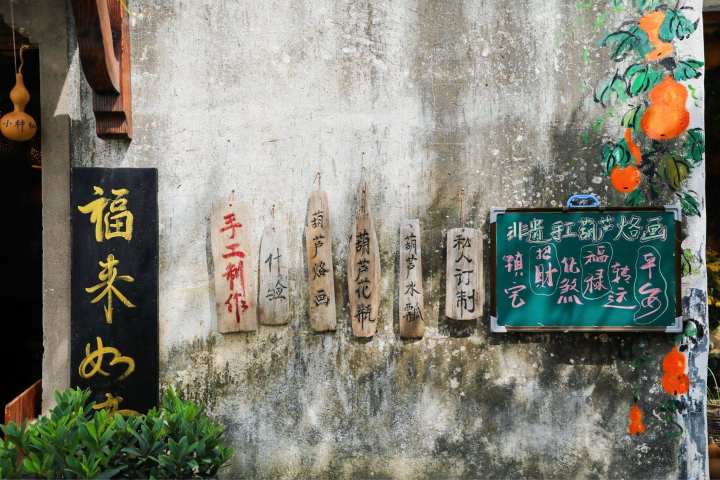 福来如
手工制作
验
葫芦烙画
葫芦花瓶
葫芦水瓢
私人订制
非遗手工葫芦烙画
镇宅
招财
化煞
福禄
转运
平安